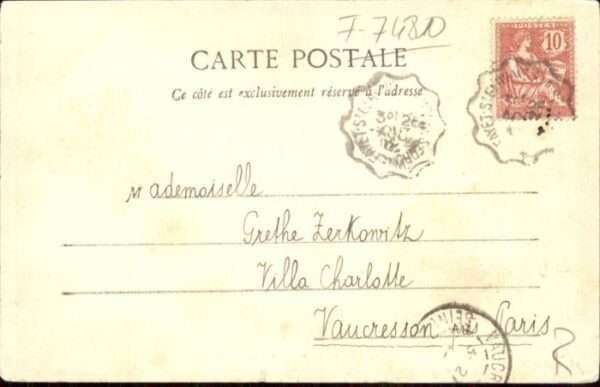 F-74810
CARTE POSTALE
Ce côté est exclusivement réservé à l'adresse
POSTES
10
Mademoiselle
Grethe Zerkowitz
Villa Charlotte
Vaucresson près Paris
VAUCR